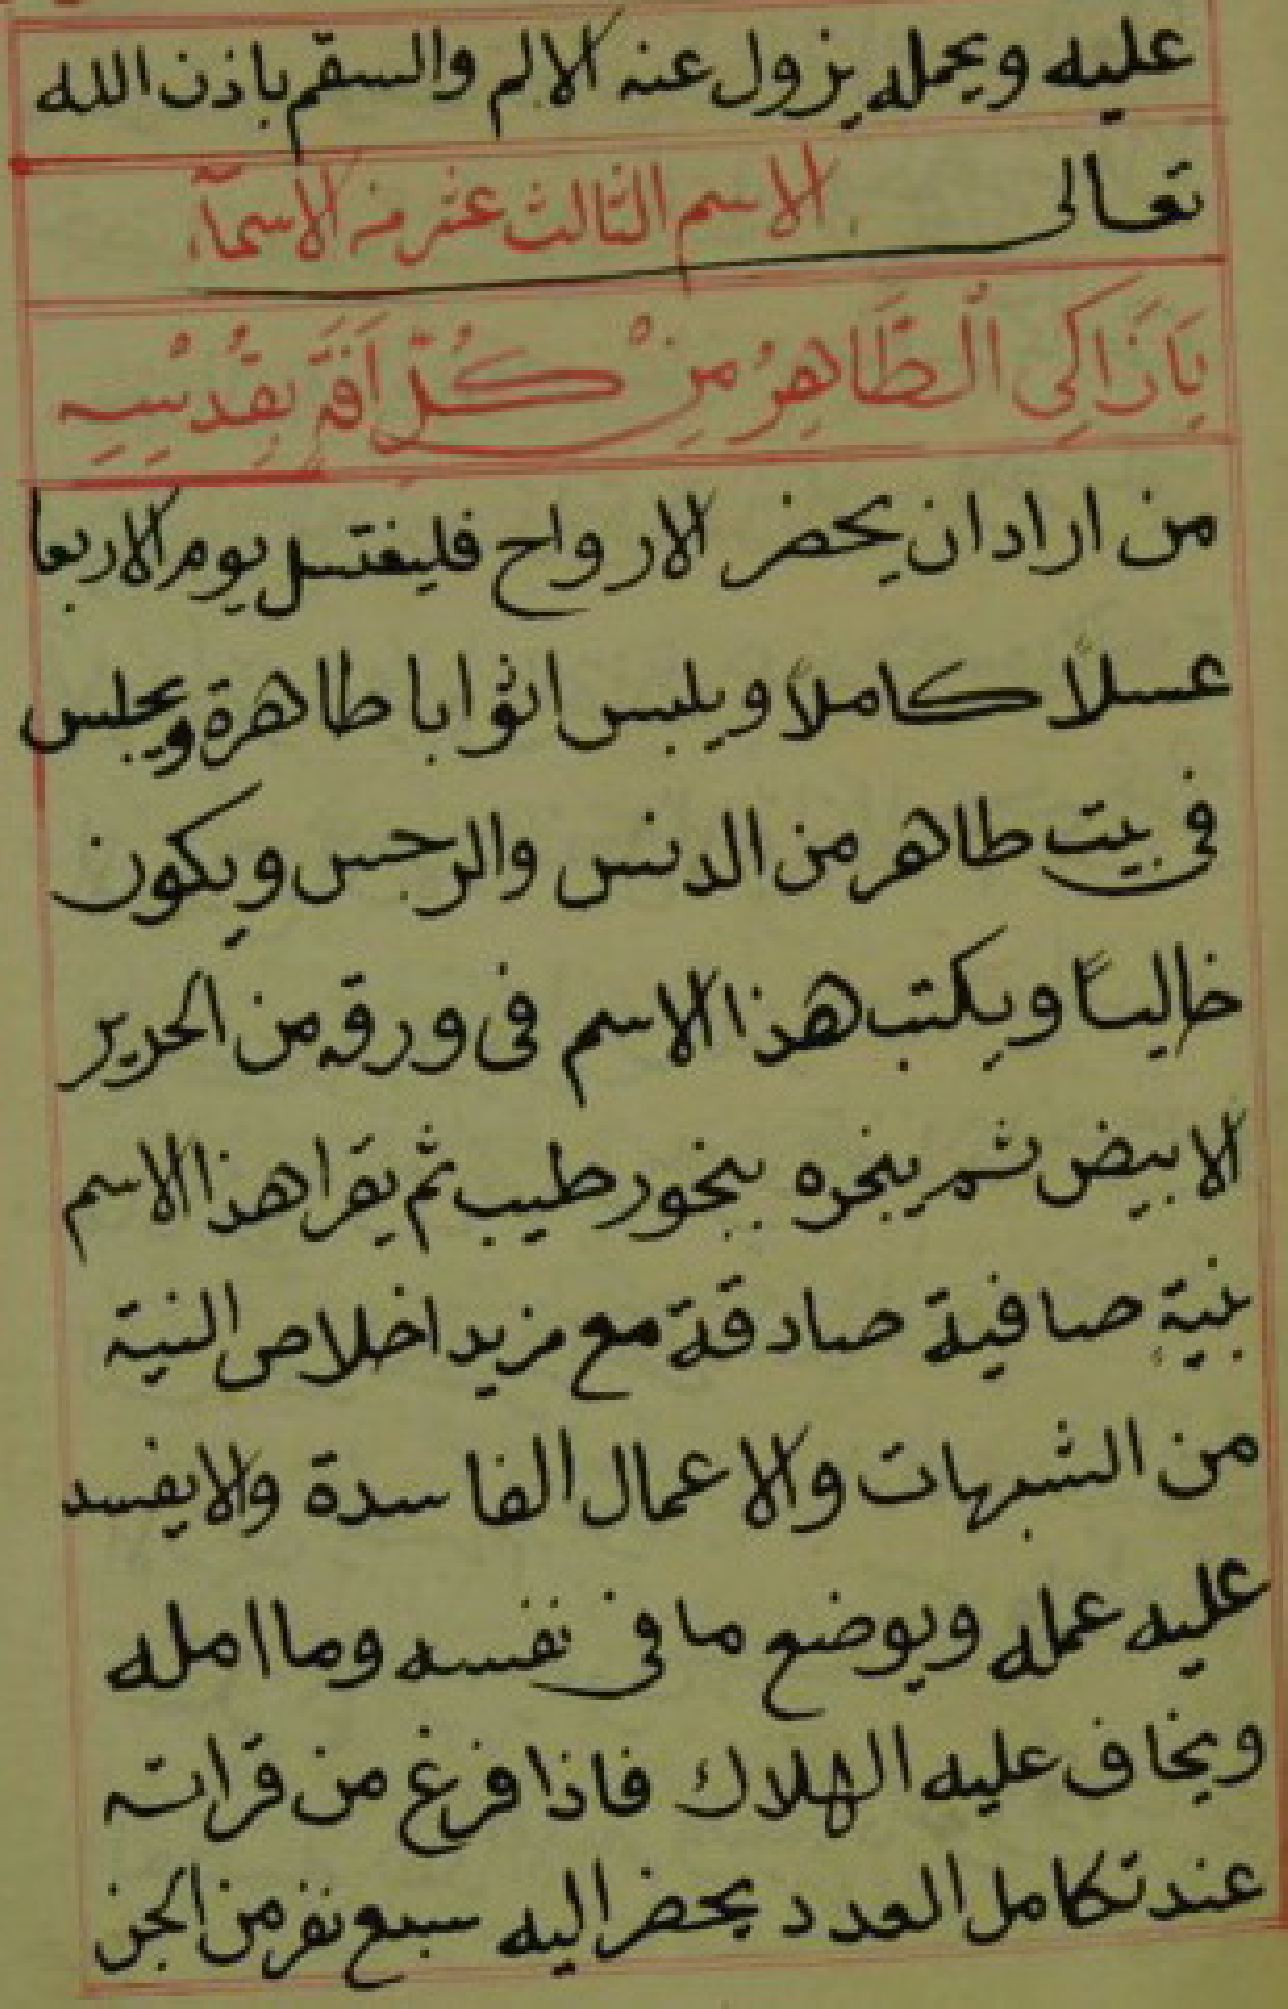 عليه ويحمله يزول عنه الالم والسقم باذن الله
تعالى الاسم الثالث عشر من الاسمآء
يَازَاكِى الْطَّاهِرُ مِنْ كُلِّ اَفَةٍ بِقُدْسِهِ
من اراد ان يحضر الارواح فليغتسل يوم الاربعا
عسلاً كاملاً ويلبس اثوابا طاهرة ويجلس
فى بيت طاهر من الدنس والرجس ويكون
خالياً ويكتب هذا الاسم فى ورقه من الحرير
الابيض ثم يبخره ببخور طيب ثم يقرا هذا الاسم
بنية صافية صادقة مع مزيد اخلاص النية
من الشبهات والاعمال الفاسدة والايفسد
عليه عمله ويوضع ما فى نفسه وما امله
ويخاف عليه الهلاك فاذا فرغ من قراته
عند تكامل العدد يحضر اليه سبع نفر من الجن